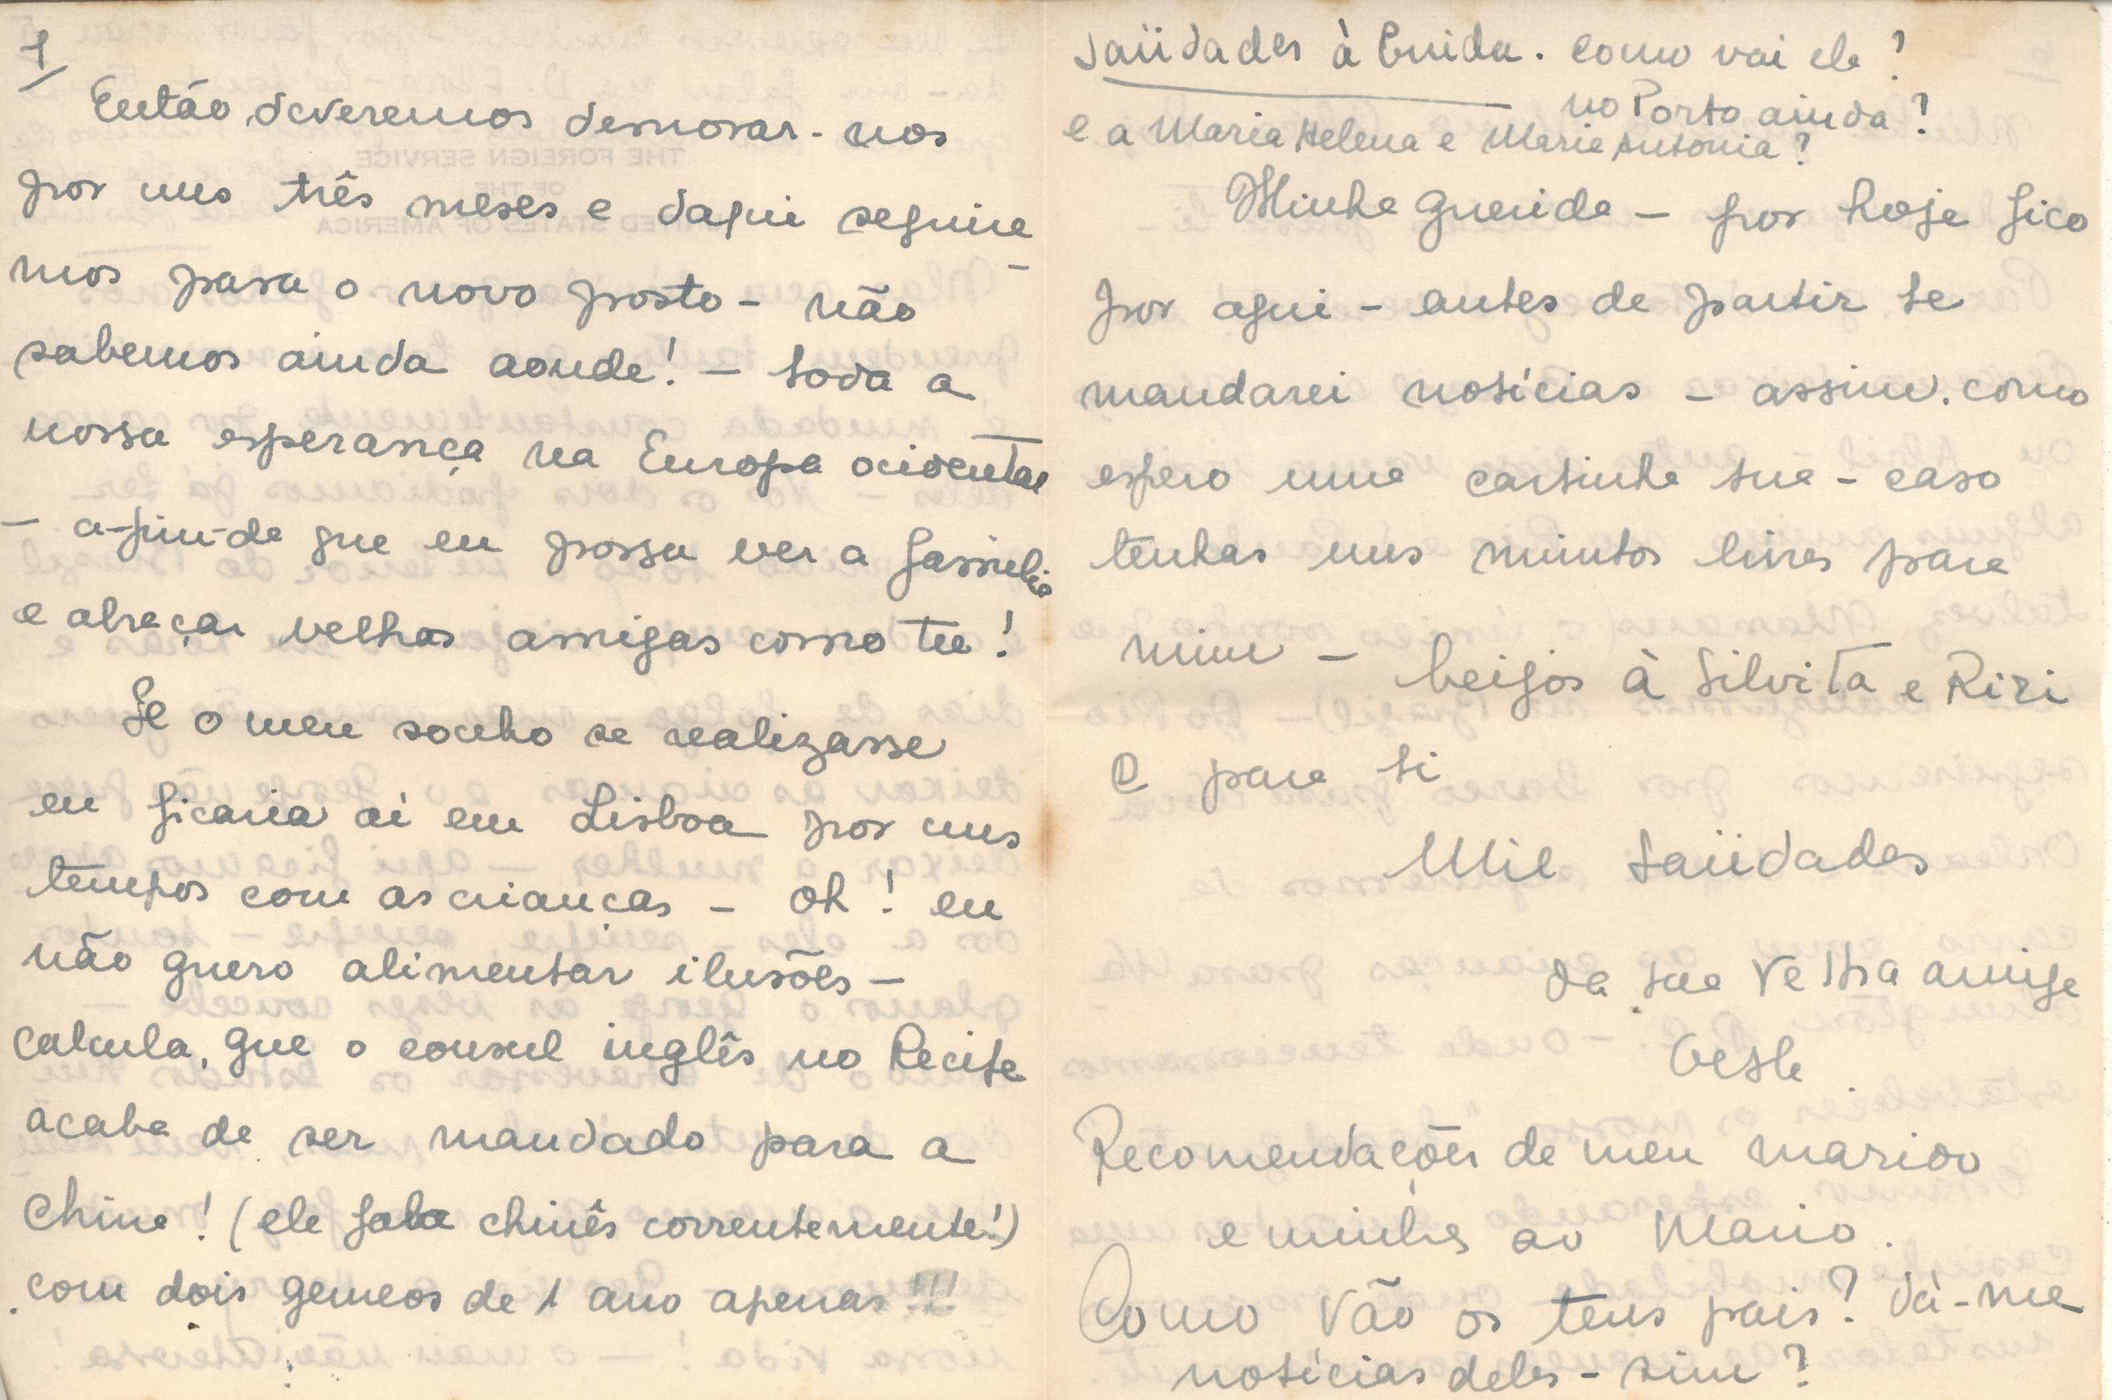 1/
Então deveremos demorar-nos
por uns três meses e daqui seguire-
mos para o novo posto - não
sabemos ainda aonde! - toda a
nossa esperança na Europa ocidental
- a-fim-de que eu possa ver a família
e abraçar velhas amigas como tu!
Se o meu sonho se realizasse
eu ficaria aí em Lisboa por uns
tempos com as crianças - oh! eu
não quero alimentar ilusões -
calcula, que o consul inglês no Recife
acaba de ser mandado para a
China! (ele fala chinês correntemente!)
com dois gemeos de 1 ano apenas!!!
Saüdades à Guida. Como vai ela?
no Porto ainda?
e a Maria Helena e Maria Antonia?
Minha querida - por hoje fico
por aqui - antes de partir te
mandarei notícias - assim como
espero uma cartinha tua - caso
tenhas uns minutos livres para
mim - beijos à Silvita e Riri
e para ti
Mil Saüdades
da tua velha amiga
Recomendações de meu marido
e minhas ao Mario.
Como vão os teus pais? dá-me
notícias deles - sim?
THE FOREIGN SERVICE
OF THE
UNITED STATES OF AMERICA